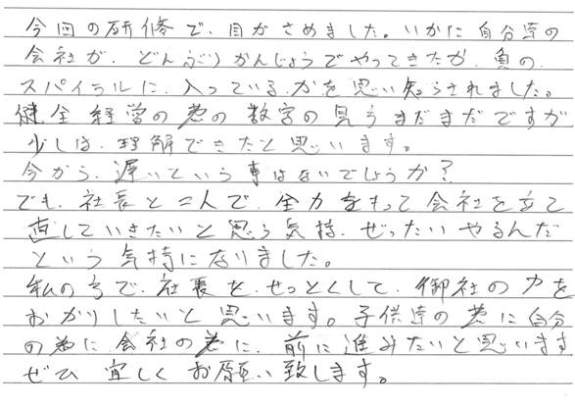 今回の研修で、目がさめました。いかに自分達の
会社が、どんぶりかんじょうでやってきたか、負の
スパイラルに、入っている、かを思い知らされました。
健全経営の為の数字の見方まだまだですが
少しは、理解できたと思います。
今から、遅いという事はないでしょうか?
でも、社長と二人で、全力をもって会社を立て
直していきたいと思う気持、ぜったいやるんだ
という気持になりました。
私の方で、社長を、せっとくして、御社の力を
おかりしたいと思います。子供達の為に自分
の為に会社の為に、前に進みたいと思います
ぜひ宜しくお願い致します。